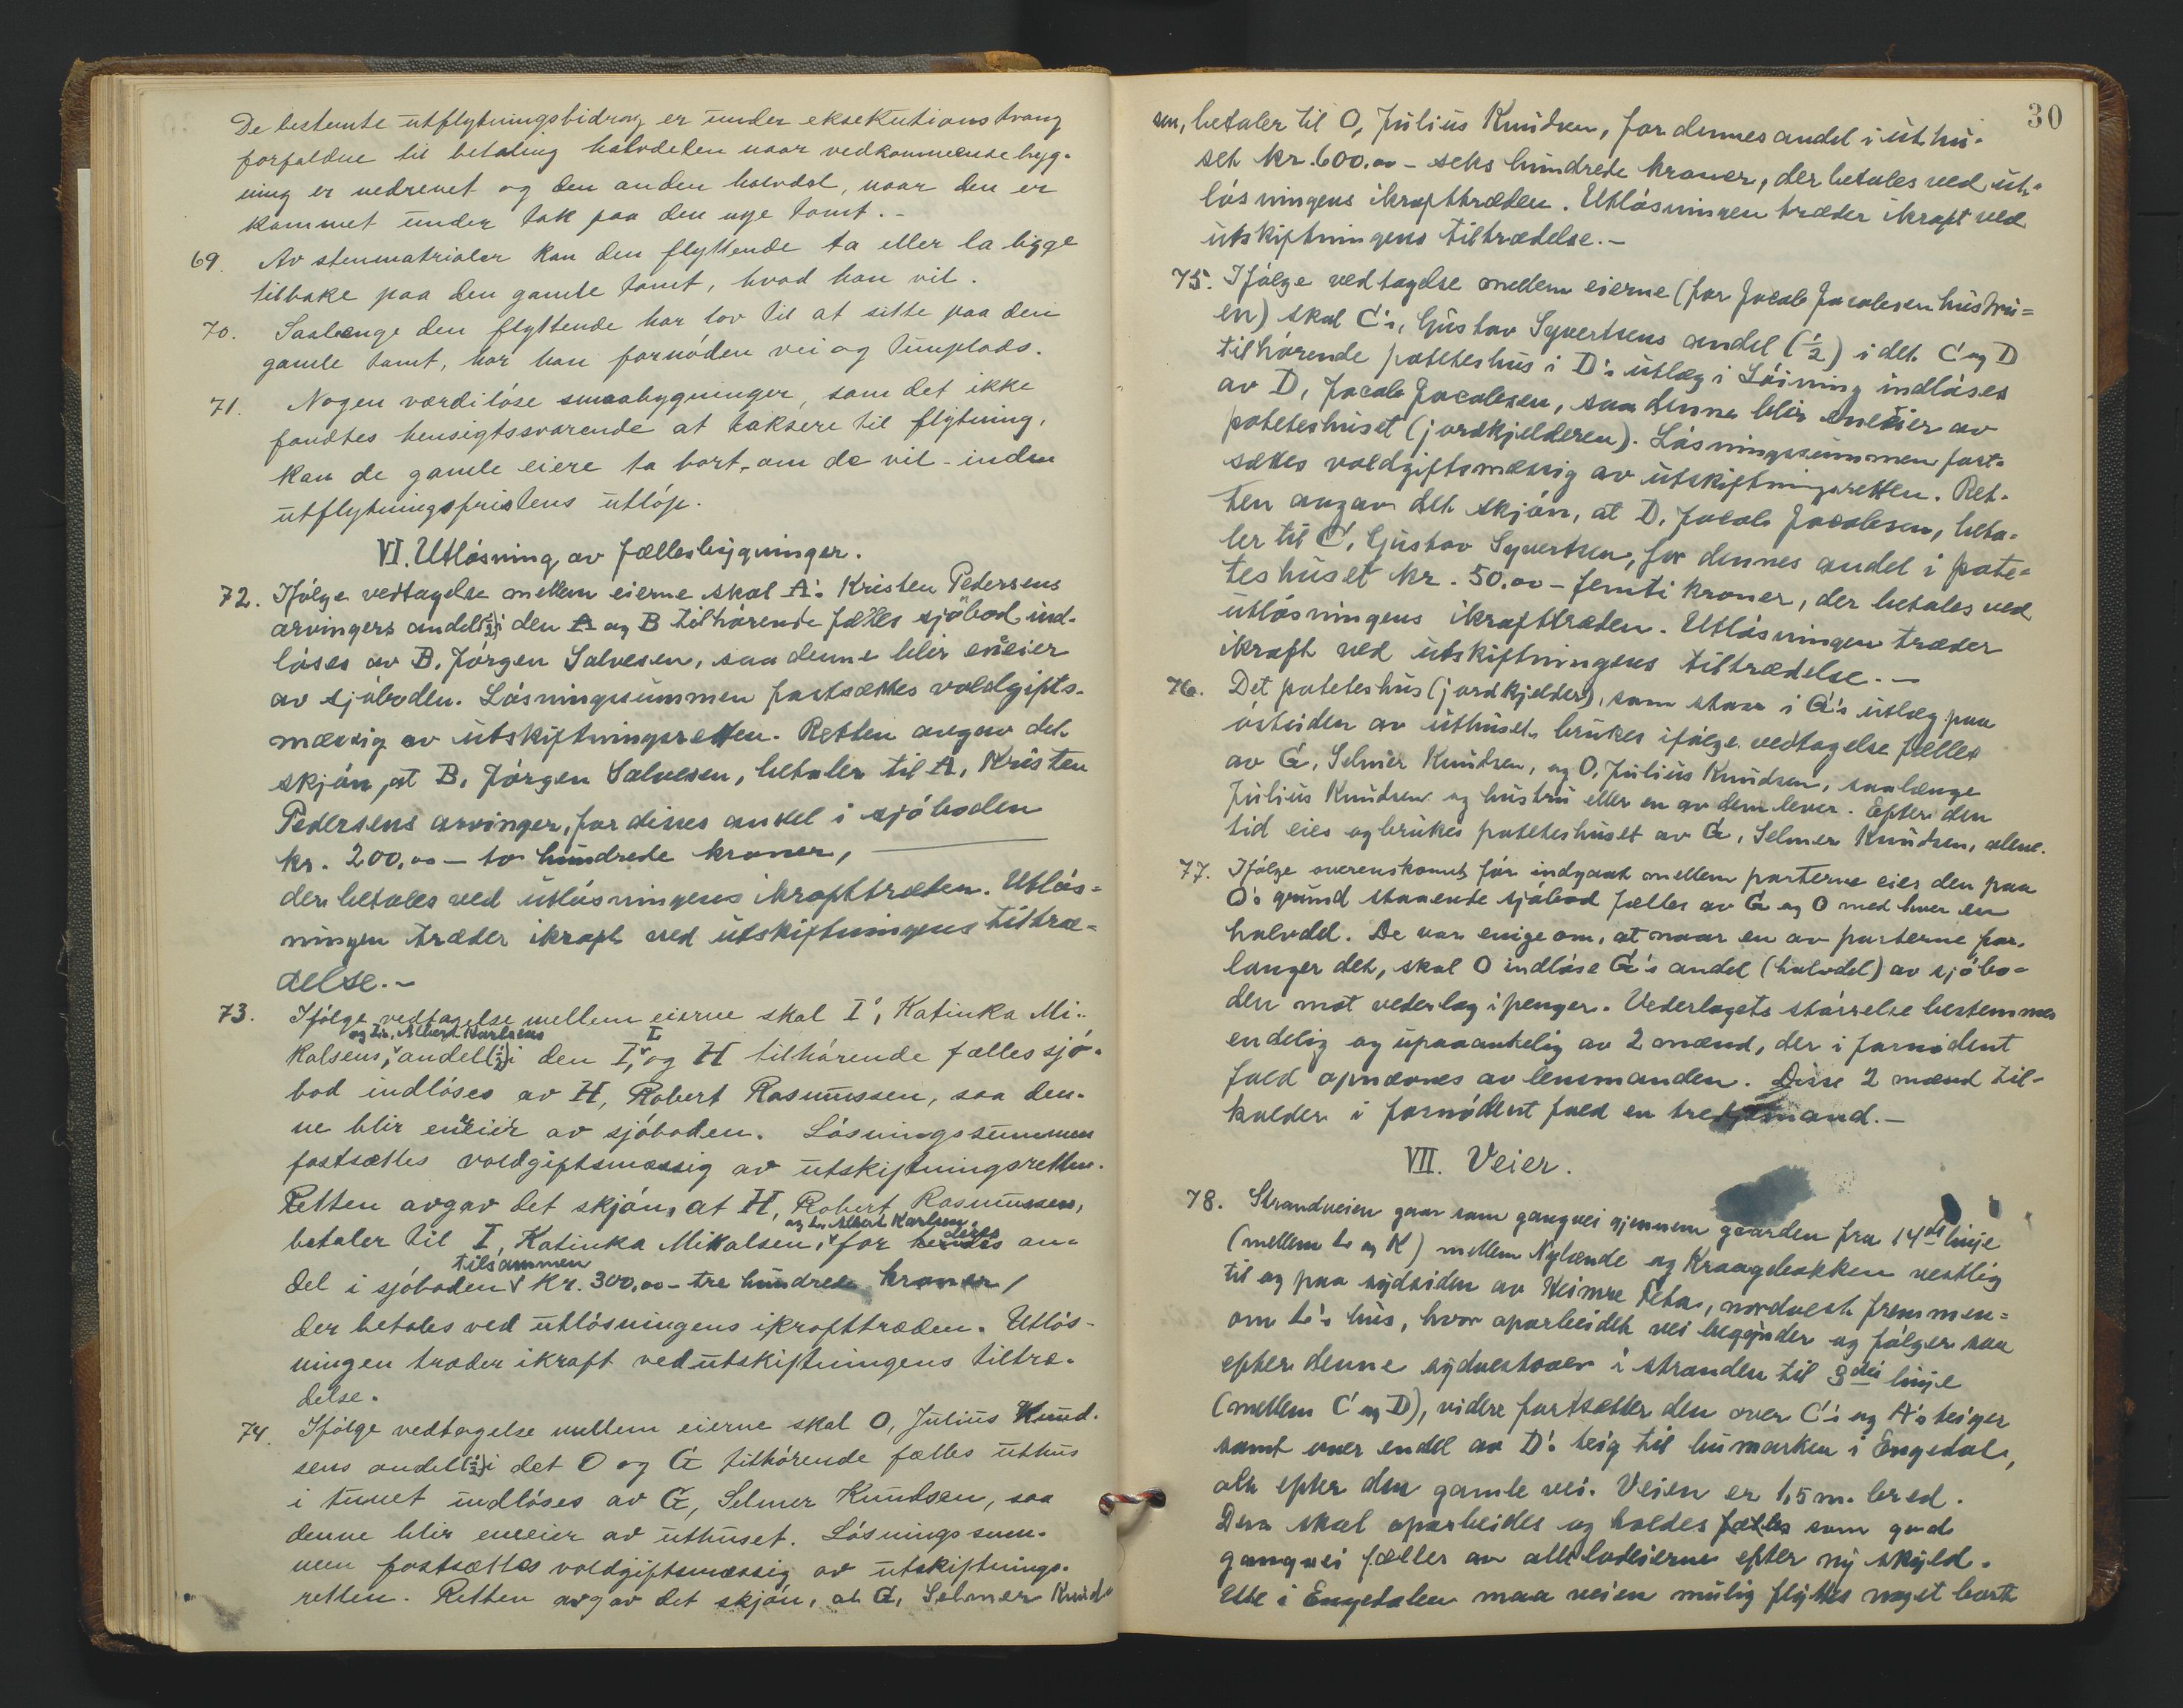 De bestemte utflytningsbidrag er under eksekutionstvang
forfaldne til betaling halvdelen naar vedkommende byg-
ning er nedrevet og den anden halvdel, naar den er
kommet under tak paa den nye tomt.-
69. Av stenmatrialer kan den flyttende ta eller la ligge
tilbake paa den gamle tomt, hvad han vil.
70. Saalænge den flyttende har lov til at sitte paa den
gamle tomt, har han fornöden vei og tunplads.
71. Nogen værdilöse smaabygninger, som det ikke
fandtes hensigtssvarende at taksere til flytning,
kan de gamle eiere ta bort, om de vil - inden
utflytningsfristens utlöp.
VI. Utlösning av fællesbygninger.
72. Ifölge vedtagelse mellem eierne skal A's Kristen Pedersens
arvingers andel (1/2) i den A og B tilhörende fælles sjöbod ind-
löses av B. Jörgen Salvesen, saa denne blir eneeier
av sjöboden. Lösningssummen fastsættes voldgifts-
mæssig av utskiftningsretten. Retten avgav det
skjön, at B, Jörgen Salvesen, betaler til A, Kristen
Pedersens arvinger, for disses andel i sjöboden
kr. 200,00 - to hundrede kroner,
der betales ved utlösningens ikrafttræden. Utlös-
ningen træder ikraft ved utskiftningens tiltræ-
delse.-
73. Ifölge vedtagelse mellem eierne skal I's, Katinka Mi-
og L's, Albert Karlsens L
kalsens, andel (1/2) i den I, og H tilhörende fælles sjö-
bod indlöses av H, Robert Rasmussen, saa den-
ne blir eneeier av sjöboden. Lösningssummen
fastsættes voldgiftsmæssig av utskiftningsretten.
Retten avgav det skjön, at H, Robert Rasmussen,
og L, Albert Karlsen, deres
betaler til I, Katinka Mikalsen, for hendes an-
tilsammen
del i sjöboden kr. 300,00 - tre hundrede kroner,
der betales ved utlösningens ikrafttræden. Utlös-
ningen træder ikraft ved utskiftningens tiltræ-
delse.
74. Ifölge vedtagelse mellem eierne skal O, Julius Knud-
sens andel (1/2) i det O og G tilhörende fælles uthus
i tunet indlöses av G, Selmer Knudsen, saa
denne blir eneeier av uthuset. Lösningssum-
men fastsættes voldgiftsmæssig av utskiftnings-
retten. Retten avgav det skjön, at G, Selmer Knud-
30
sen, betaler til O, Julius Knudsen, for dennes andel i uthu-
set kr. 600,00 - seks hundrede kroner, der betales ved ut-
lösningens ikrafttræden. Utlösningen træder ikraft ved
utskiftningens tiltrædelse.-
75. Ifölge vedtagelse mellem eierne (for Jacob Jacobsen hustru-
en) skal C's, Gustav Syvertsens andel (1/2) i det C og D
tilhörende poteteshus i D's utlæg i Löining indlöses
av D, Jacob Jacobsen, saa denne blir eneeier av
poteteshuset (jordkjelderen). Lösningssummen fast-
sættes voldgiftsmæssig av utskiftningsretten. Ret-
ten avgav det skjön, at D, Jacob Jacobsen, beta-
ler til C, Gustav Syvertsen, for dennes andel i pote-
teshuset kr. 50,00 - femti kroner, der betales ved
utlösningens ikrafttræden. Utlösningen træder
ikraft ved utskiftningens tiltrædelse.-
76. Det poteteshus (jordkjelder), som staar i G's utlæg paa
östsiden av uthuset, brukes ifölge vedtagelse fælles
av G, Selmer Knudsen, og O, Julius Knudsen, saalænge
Julius Knudsen og hustru eller en av dem lever. Efter den
tid eies og brukes poteteshuset av G, Selmer Knudsen, alene.
77. Ifölge overenskomst för indgaat mellem parterne eies den paa
O's grund staaende sjöbod fælles av G og O med hver en
halvdel. De var enige om, at naar en av parterne for-
langer det, skal O indlöse G's andel (halvdel) av sjöbo-
den mot vederlag i penger. Vederlagets störrelse bestemmes
endelig og upaaankelig av 2 mænd, der i fornödent
fald opnævnes av lensmanden. Disse 2 mænd til-
kalder i fornödent fald en tredjemand.-
VII. Veier.
78. Strandveien gaar som gangvei gjennem gaarden fra 14de linje
(mellem L og K) mellem Nylænde og Kraagebakken vestlig
til og paa sydsiden av Heimre Feta, nordvest fremmen-
om L's hus, hvor oparbeidet vei begynder og fölger saa
efter denne sydvestover i stranden til 3die linje
(mellem C og D), videre fortsætter den over C's og A's teiger
samt over endel av D's teig til humarken i Engedal,
alt efter den gamle vei. Veien er 1,5 m. bred.
Den skal oparbeides og holdes fælles som god
gangvei fælles av alle lodeierne efter ny skyld.
Etle i Engedalen maa veien mulig flyttes noget bort